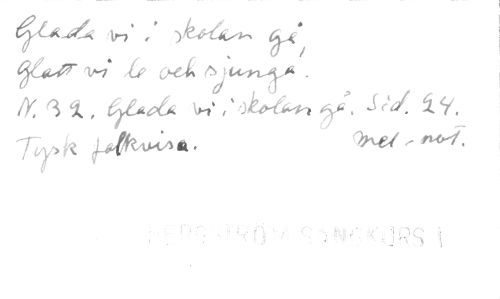 Glada vi i skolan gå,
Glatt vi le och sjunga.
N. 32. Glada vi i skolan gå. Sid. 24.
Tysk folkvisa. mel-not.
SÅNGKURS I